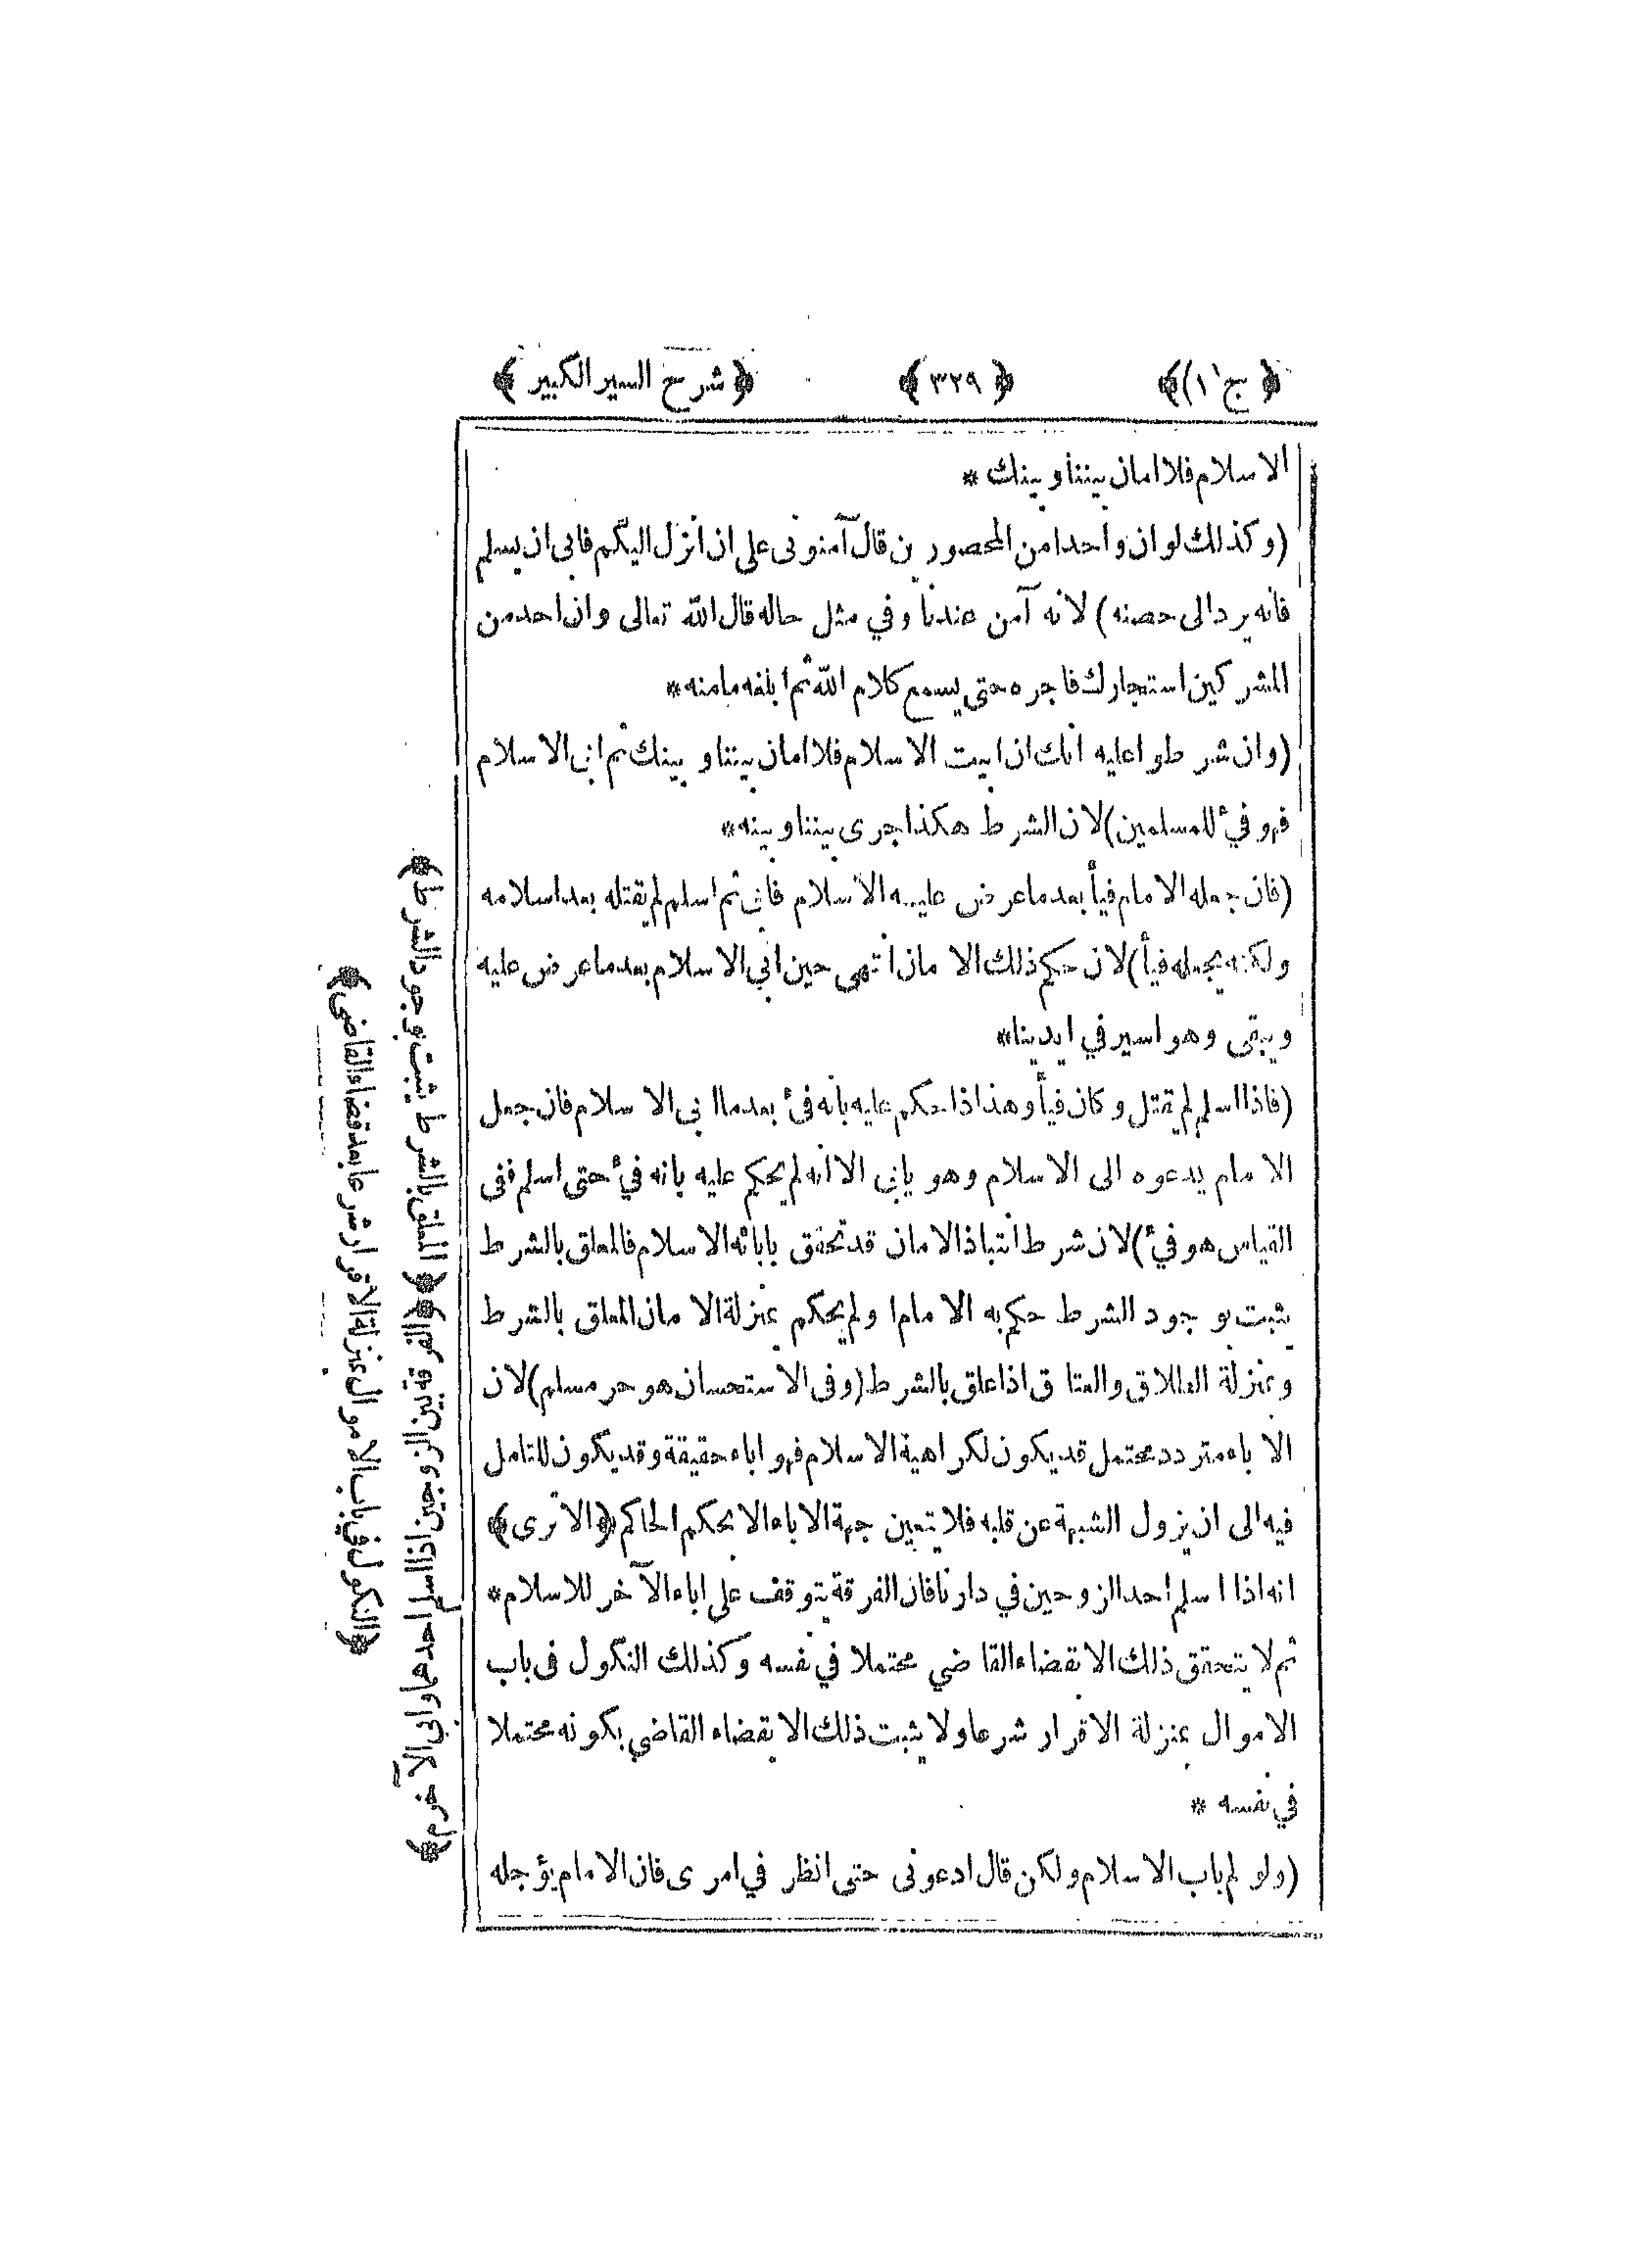 ﴿ ج (١) ﴾ ﴿ ٣٢٩ ﴾ ﴿ شرح السير الكبير ﴾
الاسلام فلا امان بيننا وبينك *
(وكذلك لو ان واحدا من المحصورين قال آمنونى على ان انزل اليكم فابى ان يسلم
فانه يرد الى حصنه) لانه آمن عندنا وفي مثل حاله قال الله تعالى وان احد من
المشركين استجارك فاجره حتى يسمع كلام الله ثم ابلغه مامنه *
(وان شرطوا عليه انك ان ابيت الاسلام فلا امان بيننا وبينك ثم ابى الاسلام
فهو فئ للمسلمين) لان الشرط هكذا جرى بيننا وبينه *
(فان جعله الامام فيأ بعد ما عرض عليه الاسلام فابى ثم اسلم لم يقتله بعد اسلامه
ولكنه يجعله فيأ) لان حكم ذلك الامان انتهى حين ابى الاسلام بعد ما عرض عليه
ويبقى وهو اسير في ايدينا *
(فاذا اسلم لم يقتل وكان فيأ وهذا اذا حكم عليه بانه فئ بعد ما ابى الاسلام فان جعل
الامام يدعوه الى الاسلام وهو يابى الا انه لم يحكم عليه بانه فئ حتى اسلم ففى
القياس هو فئ) لان شرط انتباذ الامان قد تحقق بابائه الاسلام فالمعلق بالشرط
يثبت بوجود الشرط حكم به الامام او لم يحكم بمنزلة الامان المعلق بالشرط
وبمنزلة الطلاق والعتاق اذا علق بالشرط (وفى الاستحسان هو حر مسلم) لان
الاباء متردد محتمل قد يكون لكراهية الاسلام فهو اباء حقيقة وقد يكون للتامل
فيه الى ان يزول الشبهة عن قلبه فلا تتعين جهة الاباء الا بحكم الحاكم ﴿الا ترى﴾
انه اذا اسلم احد الزوجين في دارنا فان الفرقة يتوقف على اباء الآخر للاسلام *
ثم لا يتحقق ذلك الا بقضاء القاضي محتملا في نفسه وكذلك النكول فى باب
الاموال بمنزلة الاقرار شرعا ولا يثبت ذلك الا بقضاء القاضي بكونه محتملا
في نفسه *
(ولو لم ياب الاسلام ولكن قال ادعونى حتى انظر في امرى فان الامام يؤجله
﴿ المعلق بالشرط يثبت بوجود الشرط ﴾
﴿ الفرقة بين الزوجين اذا اسلم احدهما وابى الآخر ﴾
﴿ النكول في باب الاموال بمنزلة الاقرار شرعا بعد قضاء القاضى ﴾